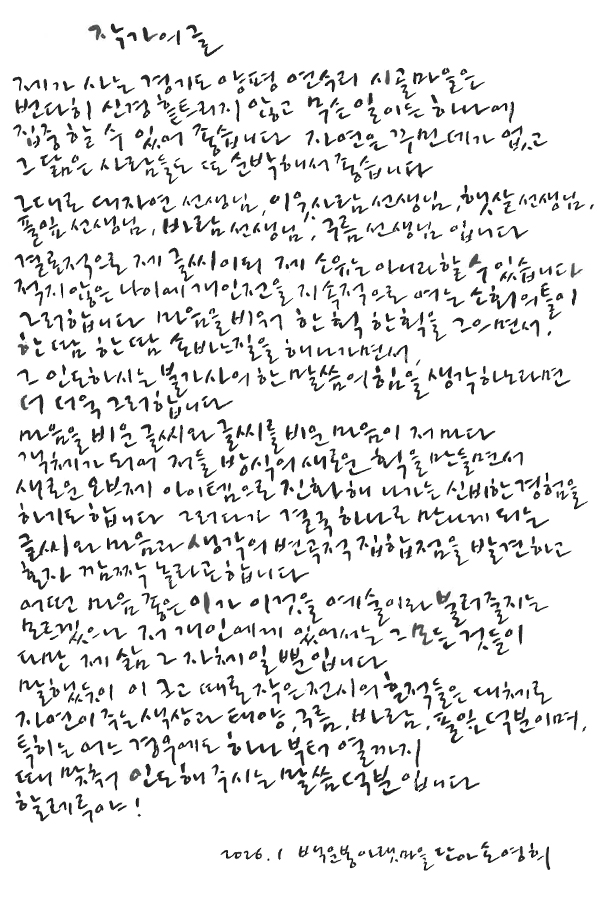 작가의 글
제가 사는 경기도 양평 연수리 시골마을은
번다히 신경 흩트리지 않고 무슨 일이든 하나에
집중할 수 있어 좋습니다 자연은 꾸민데가 없고
그 닮은 사람들도 또 순박해서 좋습니다
그대로 대자연 선생님, 이웃사람 선생님, 햇살 선생님,
풀잎 선생님, 바람 선생님, 구름 선생님 입니다
결론적으로 제 글씨이되 제 소유는 아니라 할 수 있습니다
적지 않은 나이에 개인전을 지속적으로 여는 소회의 틀이
그러합니다 마음을 비워 한 획 한 획을 그으면서,
한 땀 한 땀 손바느질을 해나가면서,
그 인도하시는 불가사의한 말씀의 힘을 생각하노라면
더 더욱 그러합니다
마음을 비운 글씨와 글씨를 비운 마음이 저마다
객체가 되어 저들 방식의 새로운 획을 만들면서
새로운 오브제 아이템으로 진화해 나가는 신비한 경험을
하기도 합니다 그러다가 결국 하나로 만나게 되는
글씨와 마음과 생각의 변곡적 집합점을 발견하고
혼자 깜짝 놀라곤 합니다
어떤 마음 좋은 이가 이것을 예술이라 불러줄지는
모르겠으나 저 개인에게 있어서는 그 모든 것들이
다만 제 삶 그 자체일 뿐입니다
말했듯이 이 크고 때로 작은 전시의 흔적들은 대체로
자연이 주는 색상과 태양, 구름, 바람, 풀잎 덕분이며,
특히는 어느 경우에도 하나부터 열까지
때 맞춰 인도해 주시는 말씀 덕분입니다
할렐루야!
2026. 1 백운봉 아랫마을 단아 손영희